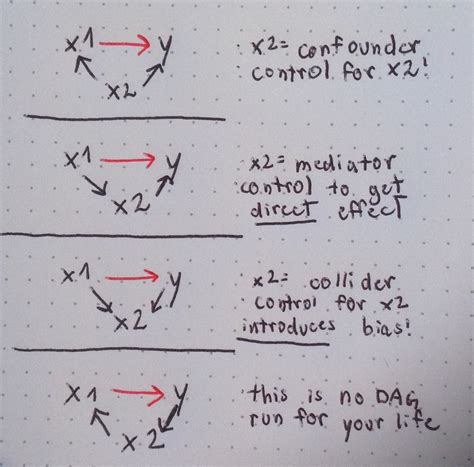 x1 → y
x2
x2 = confounder
control for x2!
x1 → y
x2
x2 = mediator
control to get
direct effect
x1 → y
x2
x2 = collider
control for x2
introduces bias!
x1 → y
x2
this is no DAG
run for your life